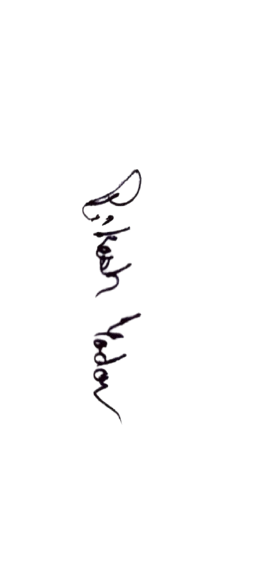 Bikash Yadav